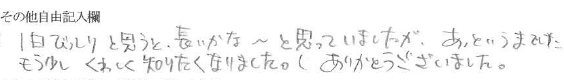 その他自由記入欄
1日びっしりと思うと、長いかな〜と思っていましたが、あっというまでした
もう少しくわしく知りたくなりました。( ありがとうございました。